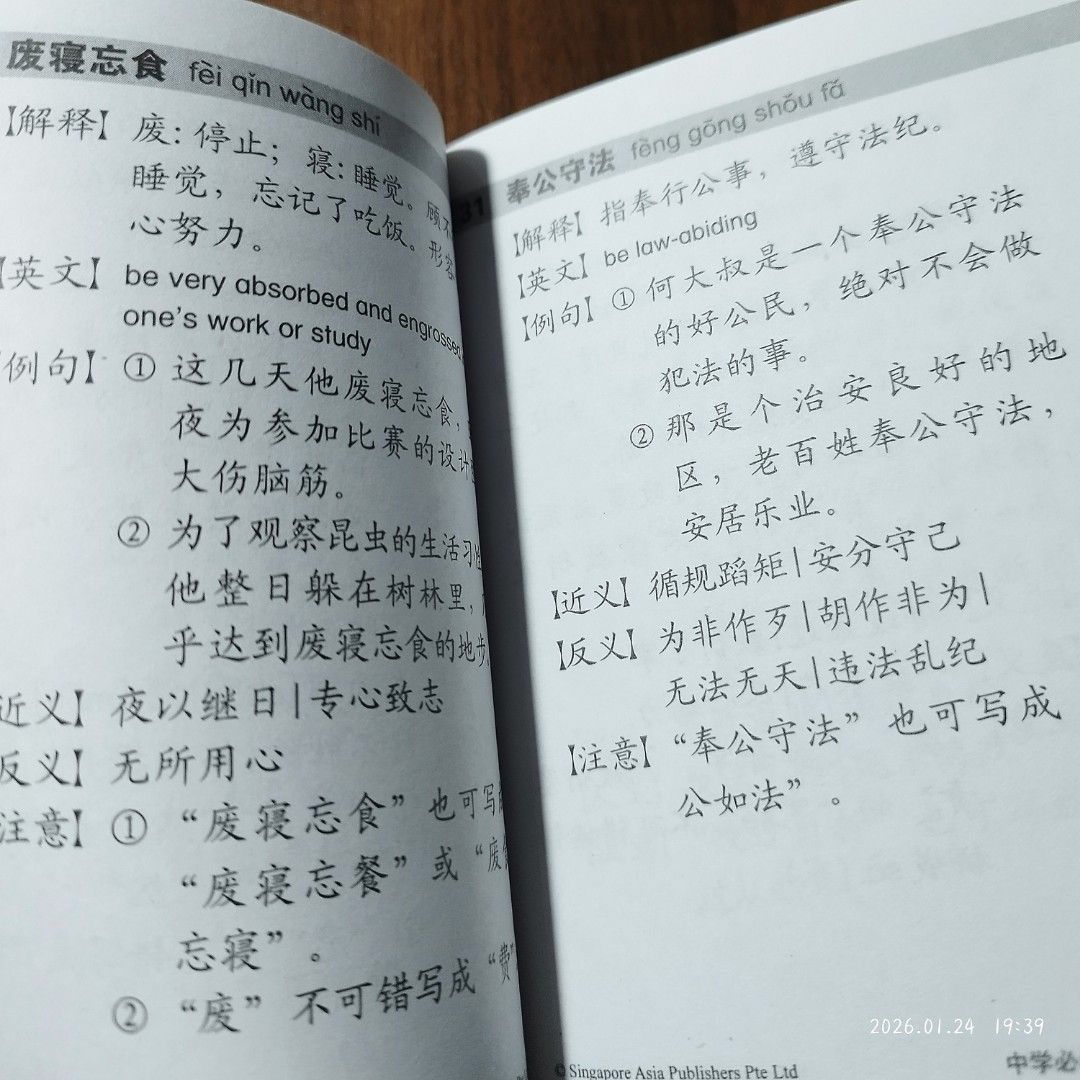 废寝忘食 fèi qǐn wàng shí
【解释】废：停止；寝：睡觉。顾
睡觉，忘记了吃饭。形容
心努力。
【英文】be very absorbed and engrossed
one's work or study
【例句】① 这几天他废寝忘食，
夜为参加比赛的设计
大伤脑筋。
② 为了观察昆虫的生活习性
他整日躲在树林里，
乎达到废寝忘食的地步。
近义】夜以继日|专心致志
反义】无所用心
注意】① “废寝忘食”也可写
“废寝忘餐”或“废
忘寝”。
② “废”不可错写成“费”
31 奉公守法 fèng gōng shǒu fǎ
【解释】指奉行公事，遵守法纪。
【英文】be law-abiding
【例句】① 何大叔是一个奉公守法
的好公民，绝对不会做
犯法的事。
② 那是个治安良好的地
区，老百姓奉公守法，
安居乐业。
【近义】循规蹈矩|安分守己
【反义】为非作歹|胡作非为|
无法无天|违法乱纪
【注意】“奉公守法”也可写成
公如法”。
© Singapore Asia Publishers Pte Ltd
中学必
2026.01.24 19:39